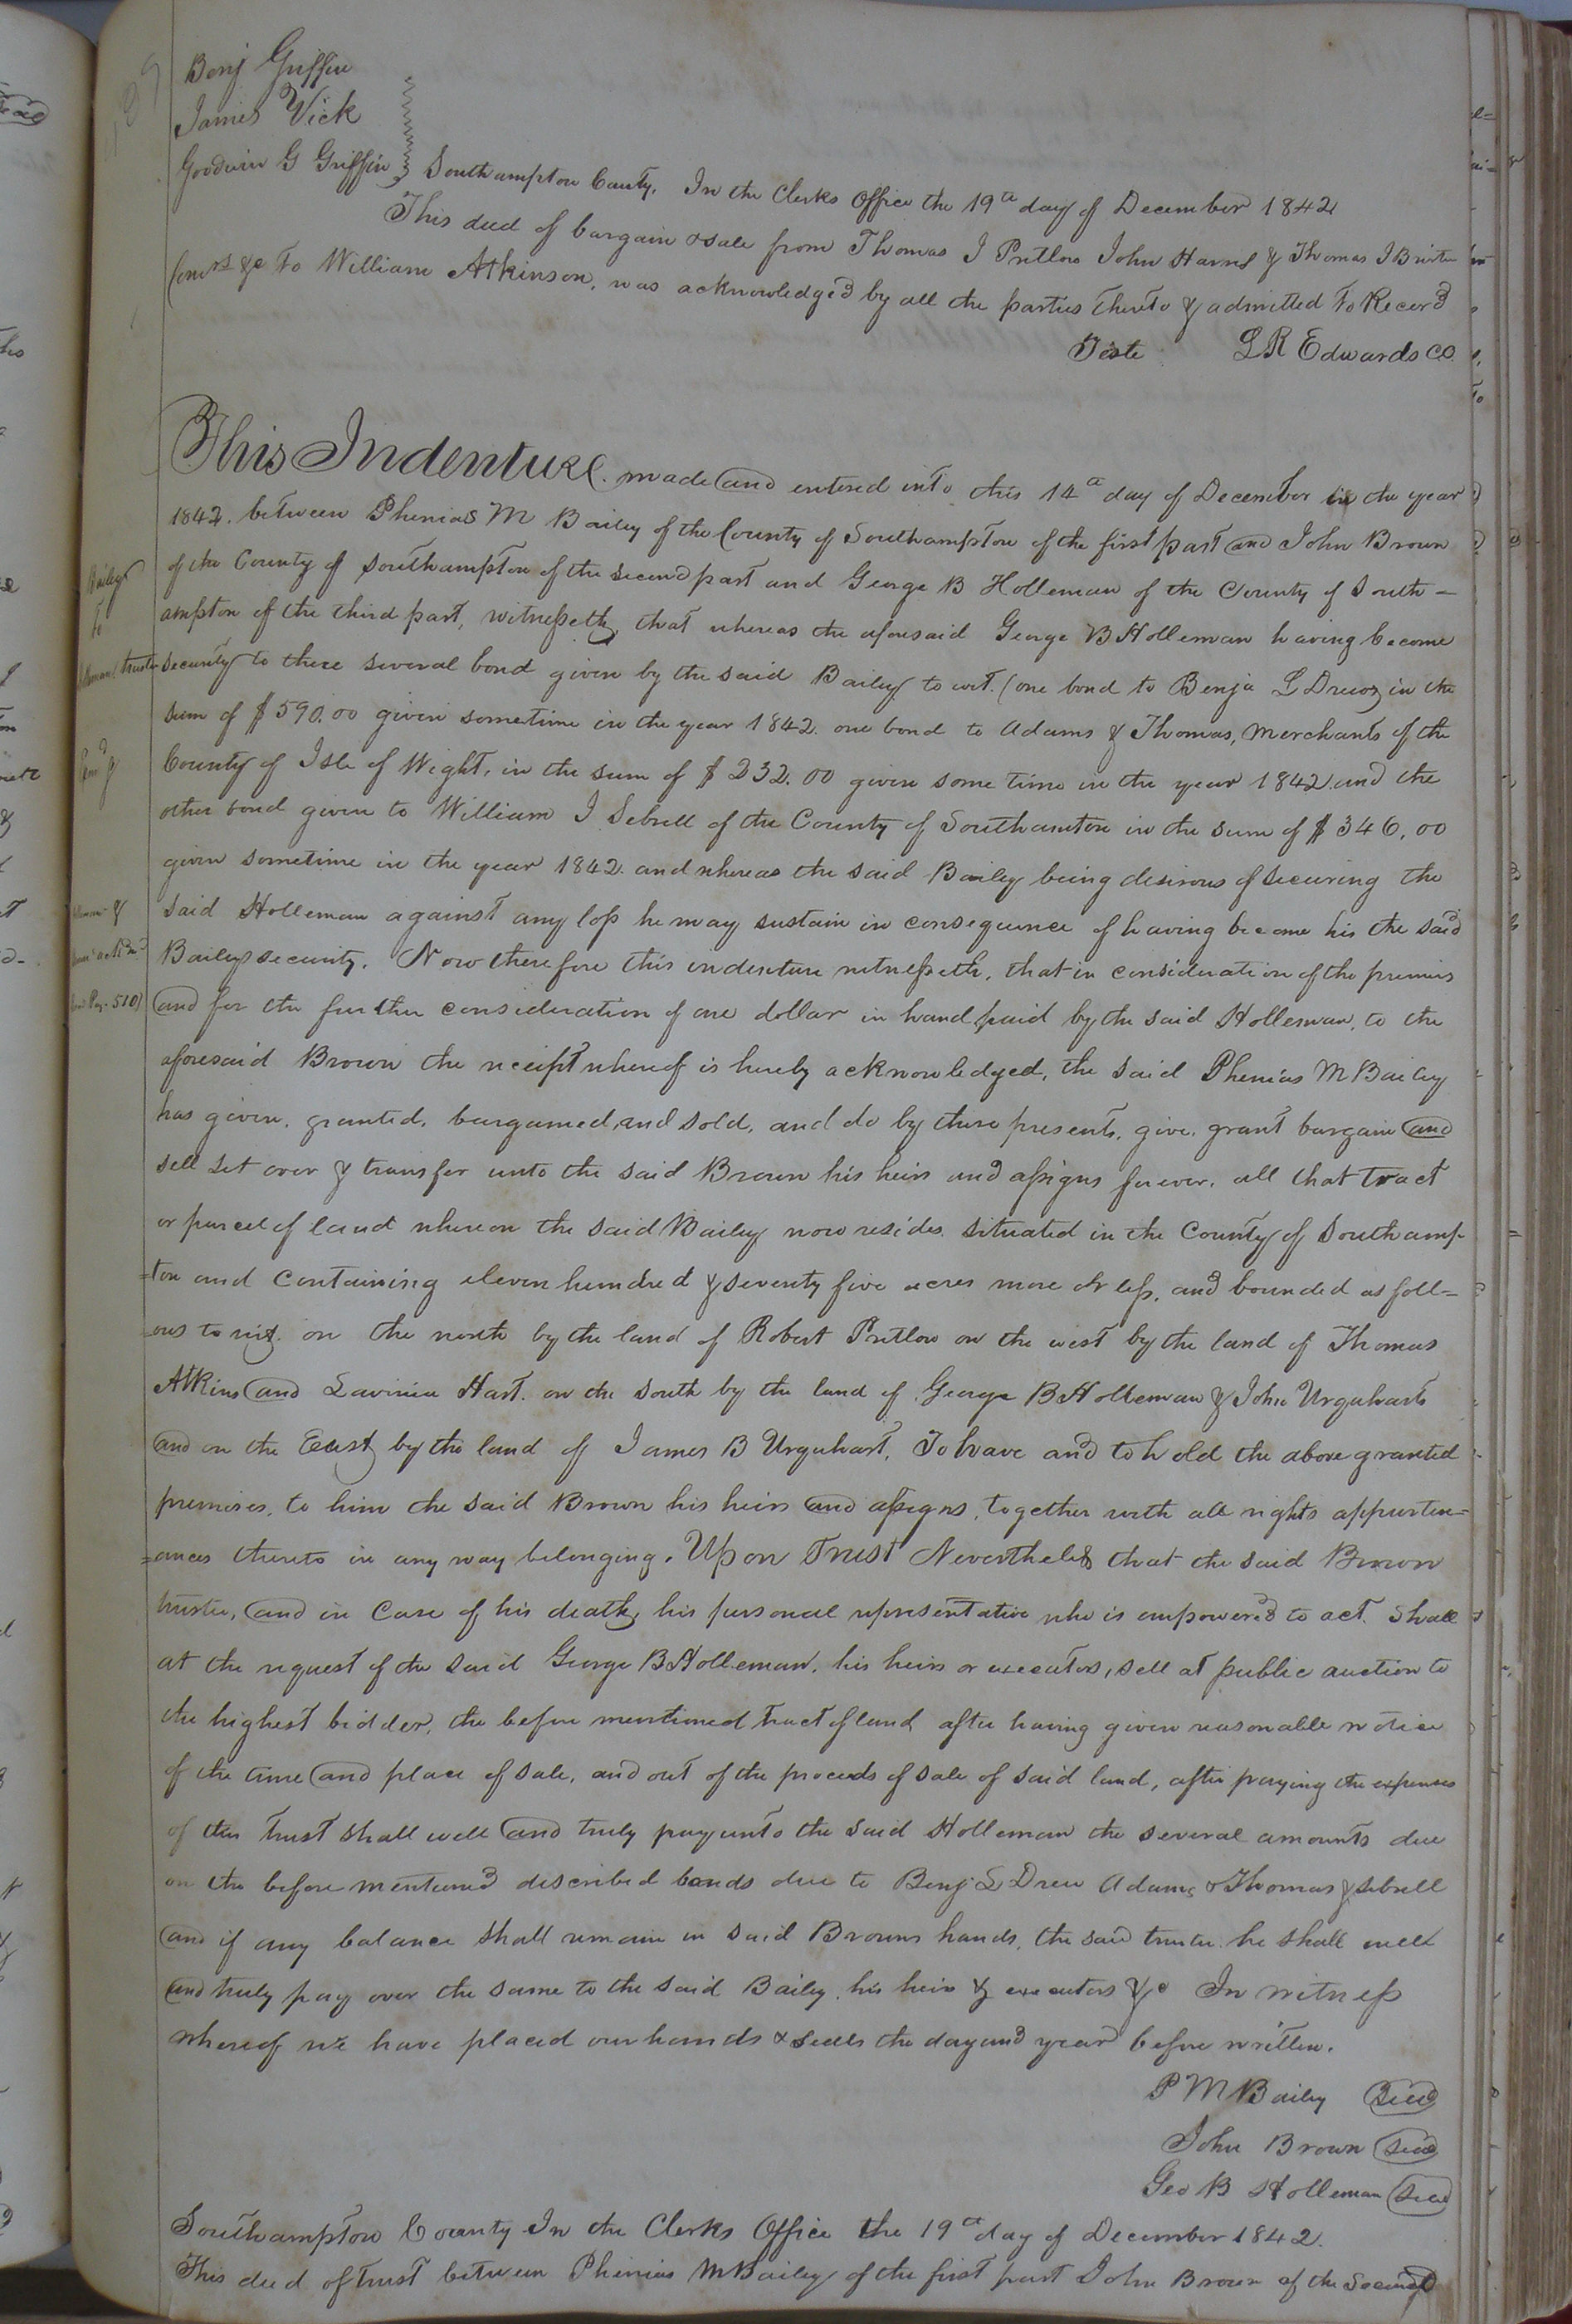 Benj Griffin
James Vick
Goodwin G Griffin } Southampton County. In the Clerks Office the 19th day of December 1842
This deed of bargain & sale from Thomas J Pretlow John Harris & Thomas J
Comrs &c to William Atkinson, was acknowledged by all the parties thereto & admitted to Record
Teste L R Edwards CC
This Indenture made and entered into this 14th day of December in the year
1842. between Phenias M Bailey of the County of Southampton of the first part and John Brown
of the County of Southampton of the second part and George B Holleman of the County of South-
ampton of the third part, witnesseth, that whereas the aforesaid George B Holleman having become
security to three several bond given by the said Bailey to wit. (one bond to Benja L Drew in the
sum of $590.00 given sometime in the year 1842. one bond to Adams & Thomas, Merchants of the
County of Isle of Wight, in the sum of $232.00 given some time in the year 1842 and the
other bond given to William J Sebrell of the County of Southamton in the sum of $346.00
given sometime in the year 1842. and whereas the said Bailey being desirous of securing the
said Holleman against any loss he may sustain in consequence of having become his the said
Baileys security. Now therefore this indenture witnesseth, that in consideration of the premises
and for the further consideration of one dollar in hand paid by the said Holleman, to the
aforesaid Brown the receipt whereof is hereby acknowledged, the said Phenias M Bailey
has given, granted, bargained, and sold, and do by these presents, give, grant bargain and
sell set over & transfer unto the said Brown his heirs and assigns forever, all that tract
or parcel of land whereon the said Bailey now resides situated in the County of Southamp-
=ton and containing eleven hundred & seventy five acres more or less, and bounded as foll-
-ows to wit. on the north by the land of Robert Pretlow on the west by the land of Thomas
Atkins and Lavinia Hart. on the south by the land of George B Holleman & John Urquhart
and on the East by the land of James B Urquhart, To have and to hold the above granted
premises, to him the said Brown his heirs and assigns, together with all rights appurten-
=ances thereto in any way belonging. Upon Trust Nevertheless that the said Brown
trustee, and in case of his death, his personal representative who is empowered to act. Shall
at the request of the said George B Holleman, his heirs or executors, sell at public auction to
the highest bidder, the before mentioned tract of land after having given reasonable notice
of the time and place of sale, and out of the proceeds of sale of said land, after paying the expenses
of this trust shall well and truly pay unto the said Holleman the several amounts due
on the before mentioned described bonds due to Benj L Drew Adams & Thomas & Sebrell
and if any balance shall remain in said Browns hands, the said trustee he shall well
and truly pay over the same to the said Bailey his heirs & executors &c In witness
whereof we have placed our hands & seals the day and year before written.
P M Bailey Seal
John Brown Seal
Geo B Holleman Seal
Southampton County In the Clerks Office the 19th day of December 1842.
This deed of trust between Phinias M Bailey of the first part John Brown of the second
Bailey
to
trustee
Exmd
Pag. 510